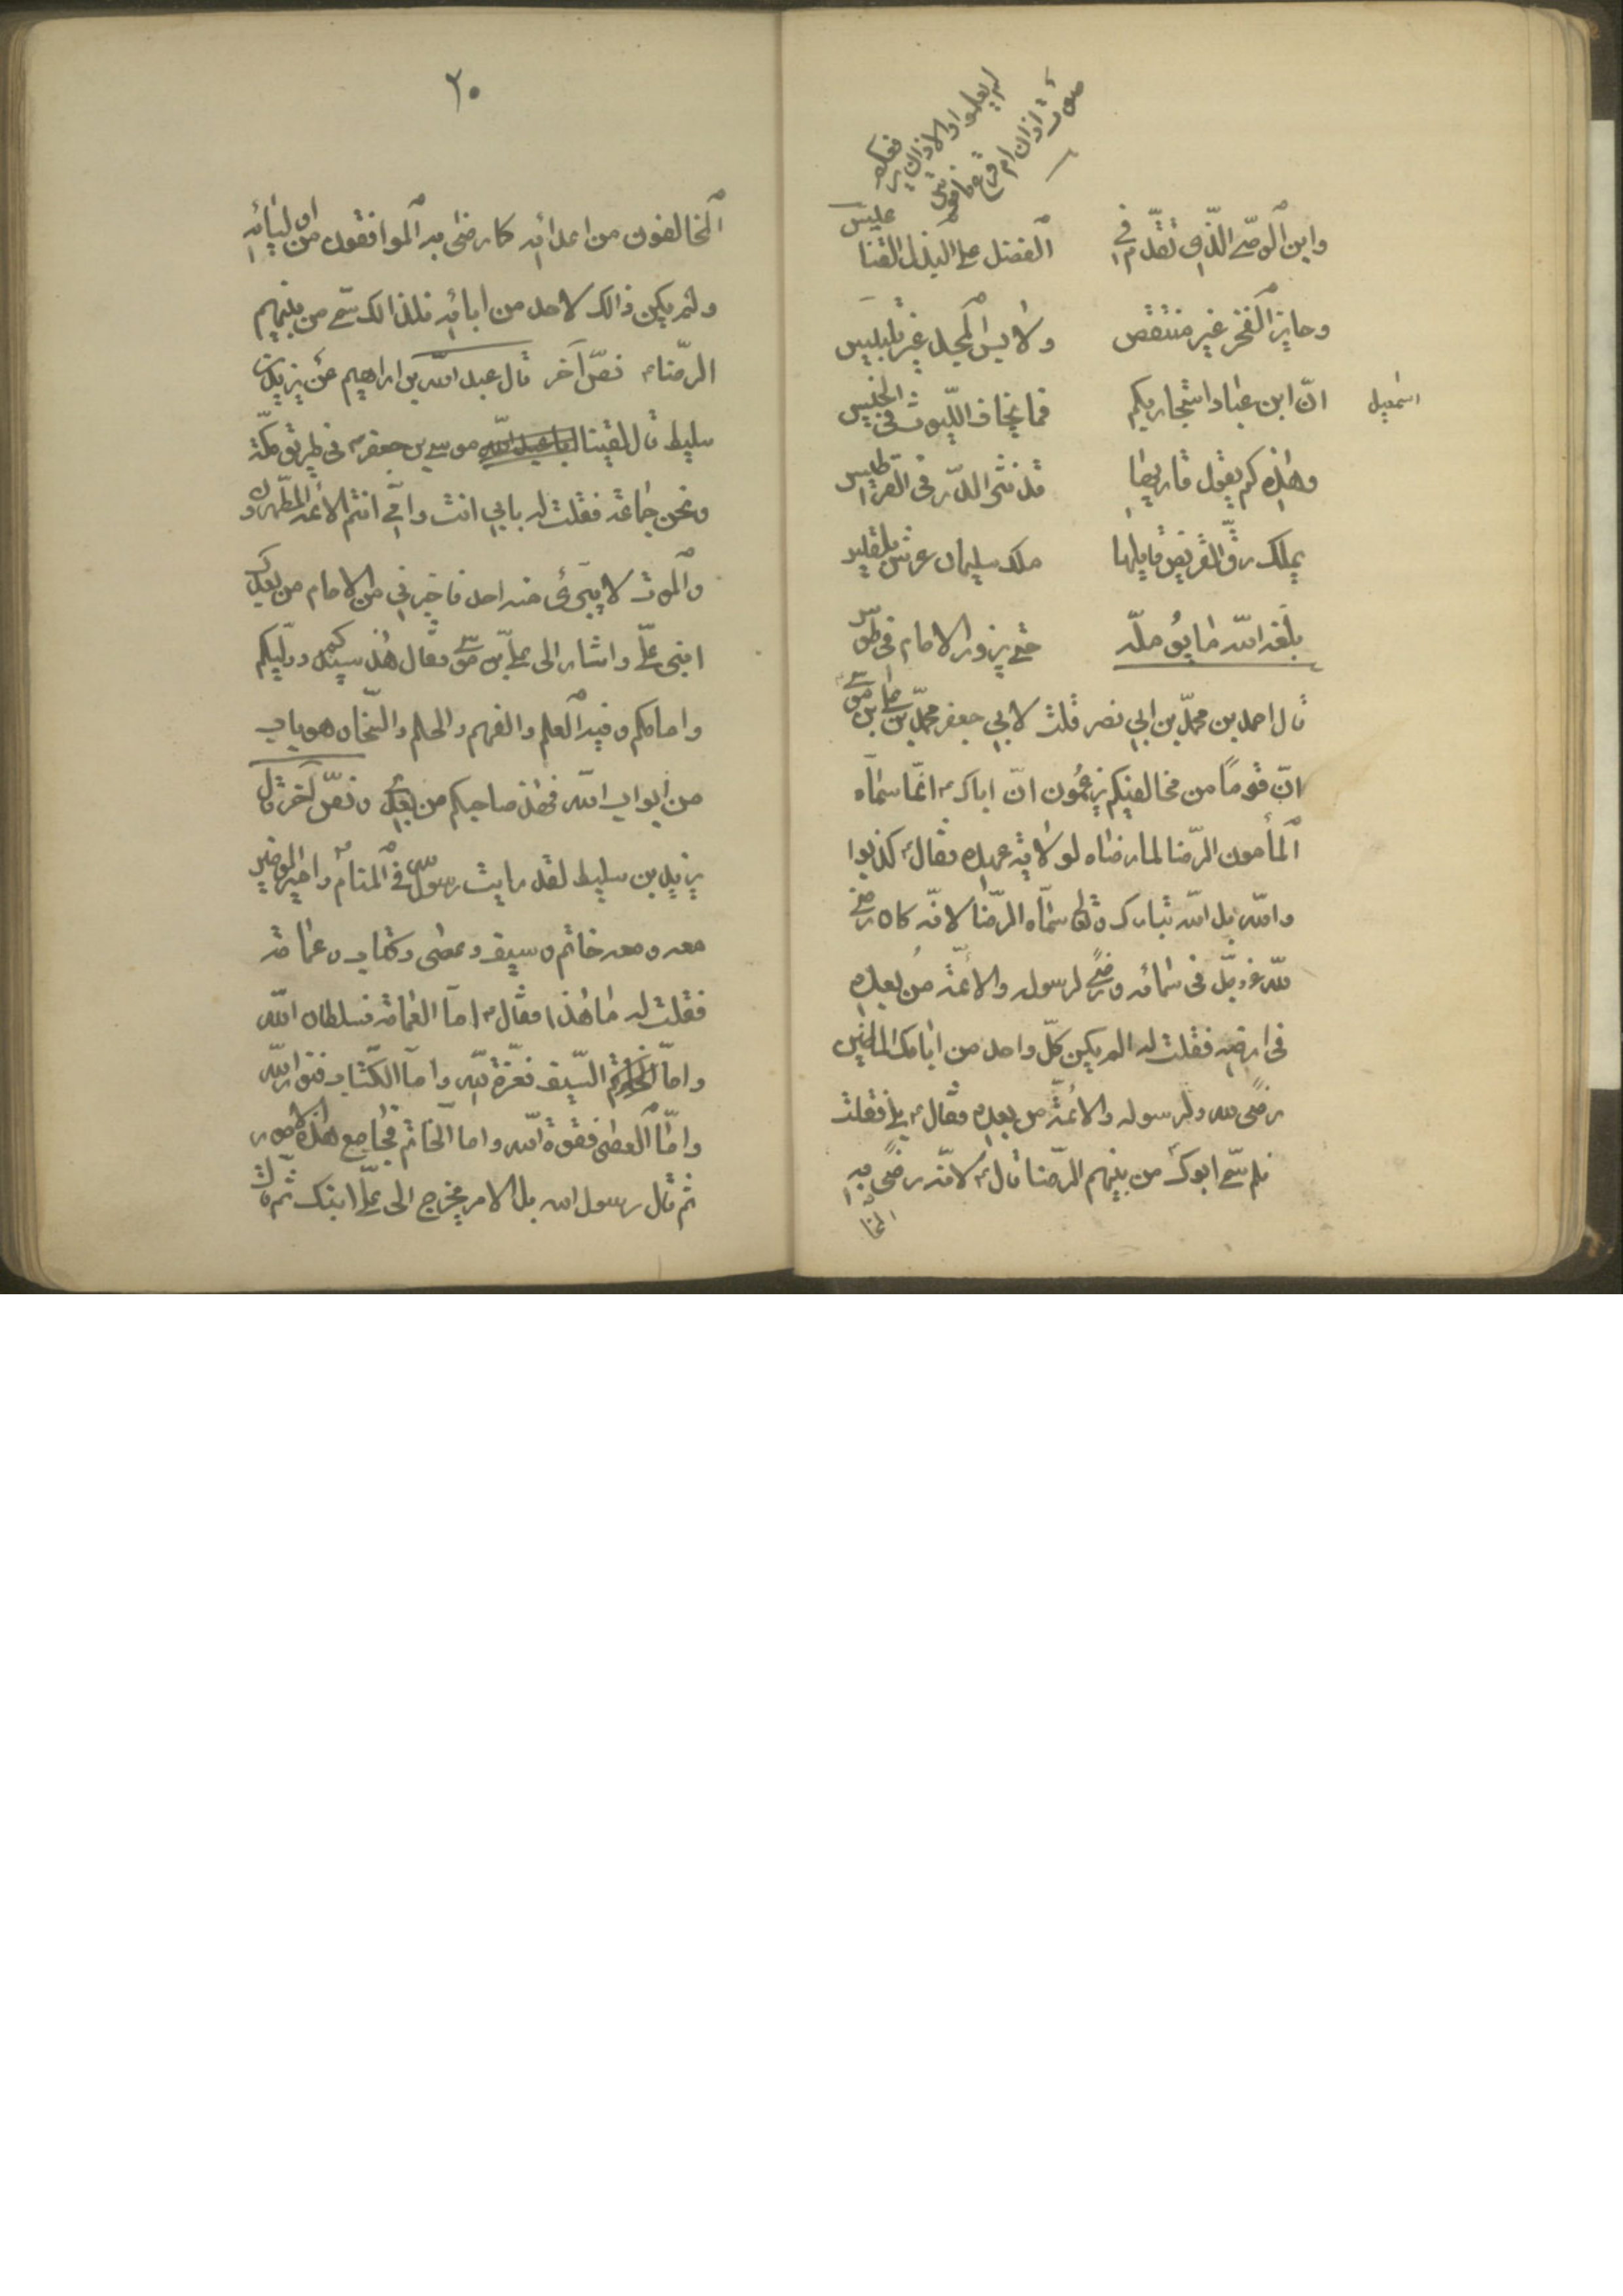 لم يعلموا والاذان يرفعكم
صوت اذان ام قرع ناقوس
وابن الوصي الذي تقدم في الفضل على البذل القناعيس
وحايز الفخر غير منتقص ولابس المجد غير تلبيس
اسمعيل
ان ابن عباد استجار بكم فما يخاف الليوث في الخيس
وهذه كم يقول قاريها قد نثر الدر في القراطيس
يملك رق القريض قايلها ملك سليمان عرش بلقيس
بلغه الله ما يؤمله حتى يزور الامام في طوس
قال احمد بن محمد بن ابي نصر قلت لابي جعفر محمد بن علي بن موسى
ان قوما من مخالفيكم يزعمون ان اباك انما سماه
المأمون الرضا لما رضاه لولاية عهده فقال كذبوا
والله بل الله تبارك وتعالى سماه الرضا لانه كان رضي
لله عز وجل في سمائه ورضى لرسوله والائمة من بعده
في ارضه فقلت له الم يكن كل واحد من ابائك الماضين
رضى لله ولرسوله والائمة من بعده فقال بلى فقلت
فلم سمي ابوك من بينهم الرضا قال لانه رضى به
المخا
٢٠
المخالفون من اعدائه كما رضى به الموافقون من اوليائه
ولم يكن ذالك لاحد من ابائه فلذالك سمي من بينهم
الرضا نص آخر قال عبد الله بن ابراهيم عن يزيد بن
سليط قال لقينا ابا عبد الله موسى بن جعفر في طريق مكة
ونحن جماعة فقلت له بابي انت وامي انتم الائمة المطهرون
والموت لا يتجرى منه احد فاخبرني من الامام من بعدك
ابني علي واشار الى علي بن موسى وقال هذا سيدكم ووليكم
وامامكم وفيه العلم والفهم والحلم والسخاء هو باب
من ابواب الله فهذا صاحبكم من بعدي ونص آخر قال
يزيد بن سليط لقد رايت رسول في المنام وامير المومنين
معه ومعه خاتم وسيف وعصى وكتاب وعمامة
فقلت له ما هذا فقال اما العمامة فسلطان الله
واما السيف فعزة لله واما الكتاب فنور الله
واما العصى فقوة الله واما الخاتم فجامع هذه الامور
ثم قال رسول الله بل الامر يخرج الى علي ابنك ثم قال